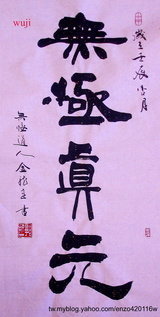 wuji
歲在壬辰
無極真元
無極道人金
書
tw.myblog.yahoo.com/enzo420116w